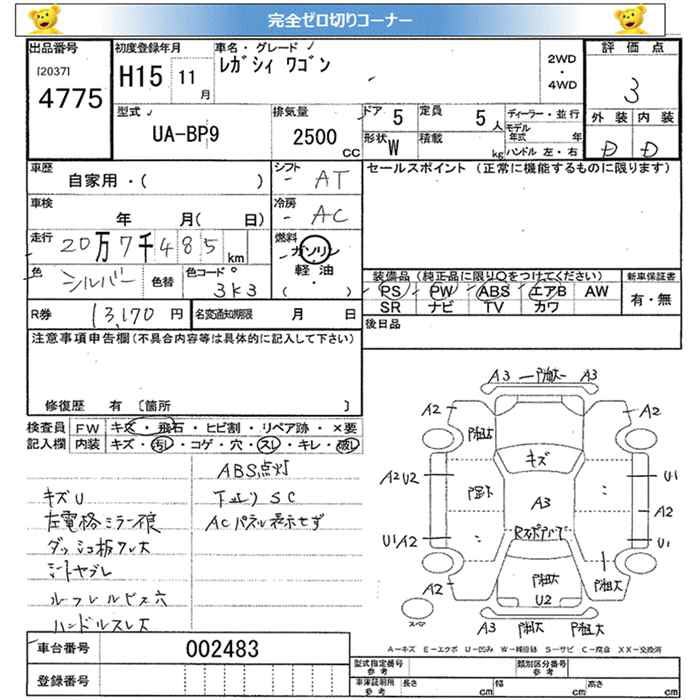 完全ゼロ切りコーナー
出品番号 初度登録年月 車名・グレード 2WD ・ 4WD 評価点
[2037] 4775 H15 11月 レガシィ ワゴン 3
型式 排気量 ドア 5 定員 5人 ディーラー・並行 外装 内装
UA-BP9 2500 CC 形状 W 積載 kg モデル年式 年 ハンドル 左・右 D D
車歴 自家用・( ) シフト AT セールスポイント (正常に機能するものに限ります)
車検 年 月( 日) 冷房 AC
走行 20万7千485km 燃料 ガソリン 軽油 ( ・ )
色 シルバー 色替 色コード 3K3
装備品(純正品に限り○をつけてください) 新車保証書
PS PW ABS エアB AW 有・無
SR ナビ TV カワ
R券 13,170円 名変通知期限 月 日 後日品
注意事項申告欄(不具合内容等は具体的に記入して下さい)
修復歴 有 〔箇所 〕
検査員 FW キズ・飛石・ヒビ割・リペア跡・×要
記入欄 内装 キズ・汚し・コゲ・穴・スレ・キレ・破し
ABS点灯
キズU 下廻りSC
左電格ミラー ACパネル表示せず
ダッシュ板ワレ大
シートヤブレ
ルーフレールビス穴
ハンドルスレ大
A3 A3
A2 A2
キズ
A2 U2 A3 U1
A2
U1 A2 U1
A2 U2
スペア A3
A-キズ E-エクボ U-凹み W-補修跡 S-サビ C-腐食 XX-交換済
車台番号 002483
登録番号
型式指定番号 参考 類別区分番号 参考
車庫証明用 参考 長さ cm 幅 cm 高さ cm